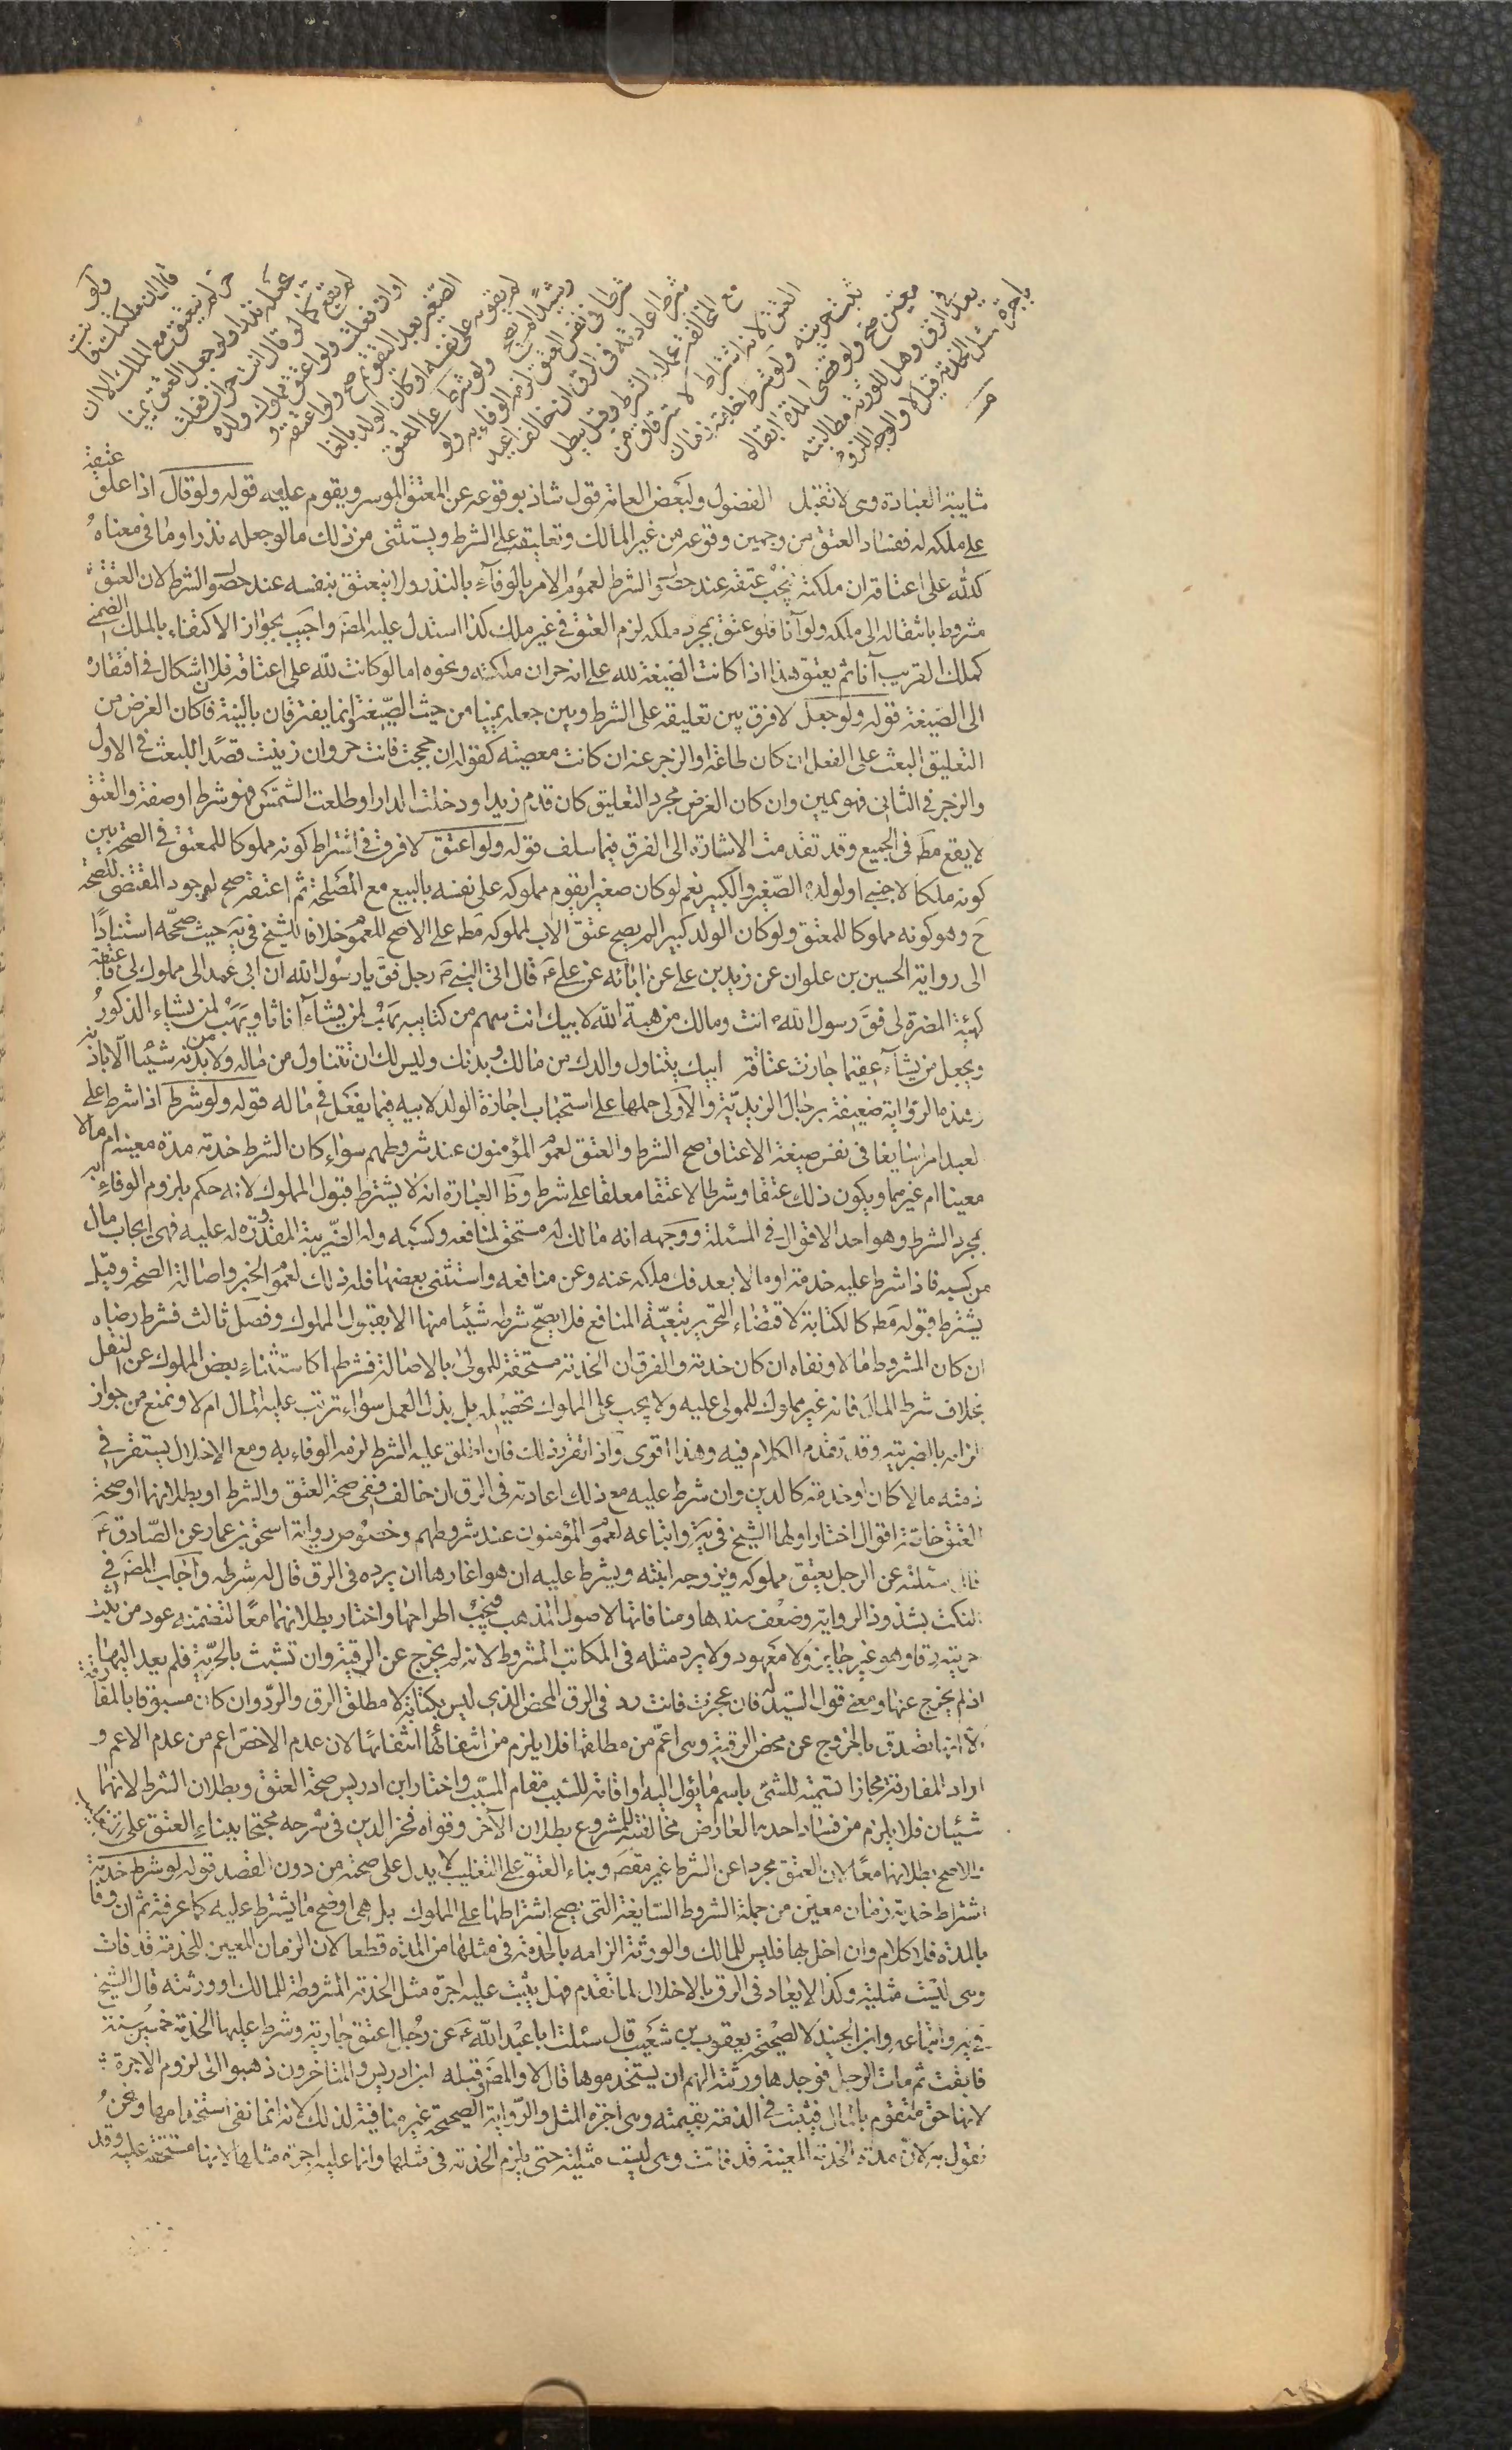 ولو
قال ان ملكتك فانت
حر لم ينعتق مع الملك الا ان
يجعله نذرا ولو جعل العتق يمينا
لم يقع كما لو قال انت حر ان فعلت
او ان فعلت ولو اعتق مملوك ولده
الصغير بعد التقويم صح ولو اعتقه و
لم يقومه على نفسه او كان الولد بالغا
رشيدا لم يصح ولو شرط على المعتق
شرطا في نفس العتق لزمه الوفاء به ولو
شرط اعادته في الرق ان خالف اعيد
مع المخالفة عملا بالشرط وقيل يبطل
العتق لانه اشتراط لاسترقاق من
ثبت حريته ولو شرط خدمة زمان
معين صح ولو قضى المدة ابقا لم
يعد في الرق وهل للورثة مطالبته
باجرة مثل الخدمة قيل لا والوجه اللزوم
شايبة العبادة وهى لا تقبل الفضول ولبعض العامة قول شاذ بوقوعه عن المعتق الموسر ويقوم عليه قوله ولو قال اذا علق عتقه
على ملكه له ففساد العتق من وجهين وقوعه من غير المالك وتعليقه على الشرط ويستثنى من ذلك ما لو جعله نذرا وما فى معناه
كلله على اعتاقه ان ملكته فيجب عتقه عند حصول الشرط لعموم الامر بالوفاء بالنذر ولا ينعتق بنفسه عند حصول الشرط لان العتق
مشروط بانتقاله الى ملكه ولو آنا فلو عتق بمجرد ملكه لزم العتق فى غير ملك كذا استدل عليه المص واجيب بجواز الاكتفاء بالملك الضمنى
كملك القريب آنا ثم يعتق هذا اذا كانت الصيغة لله على انه حر ان ملكته ونحوه اما لو كانت لله على اعتاقه فلا اشكال فى افتقاره
الى الصيغة قوله ولو جعل لا فرق بين تعليقه على الشرط وبين جعله يمينا من حيث الصيغة وانما يفترقان بالنية فان كان الغرض من
التعليق البعث على الفعل ان كان طاعة او الزجر عنه ان كانت معصيته كقوله ان حججت فانت حر وان زنيت قصدا للبعث فى الاول
والزجر فى الثانى فهو يمين وان كان الغرض مجرد التعليق كان قدم زيد او دخلت الدار او طلعت الشمس فهو شرط او صفة والعتق
لا يقع مط فى الجميع وقد تقدمت الاشارة الى الفرق فيما سلف قوله ولو اعتق لا فرق فى اشتراط كونه مملوكا للمعتق فى الصحة بين
كونه ملكا لاجنبى او لولده الصغير والكبير نعم لو كان صغيرا يقوم مملوكه على نفسه بالبيع مع المصلحة ثم اعتقه صح لوجود المقتضى للصحة
ح وهو كونه مملوكا للمعتق ولو كان الولد كبيرا لم يصح عتق الاب لمملوكه مط على الاصح للعموم خلافا للشيخ فى يه حيث صححه استنادا
الى رواية الحسين بن علوان عن زيد بن على عن ابائه عن على ع قال اتى النبى ص رجل فق يا رسول الله ان ابى عمد الى مملوك لى فاعتقه
كهيئة المضرة لى فق رسول الله ص انت ومالك من هبة الله لابيك انت سهم من كتابه يهب لمن يشاء اناثا ويهب لمن يشاء الذكور
ويجعل من يشاء عقيما جازت عتاقة ابيك يتناول والدك من مالك وبدنك وليس لك ان تتناول من ماله ولا من بدنه شيئا الا باذنه
وهذه الرواية ضعيفة برجال الزيدية والاولى حملها على استحباب اجازة الولد لابيه فيما يفعل فى ماله قوله ولو شرط اذا شرط على
لعبد امرا سايغا فى نفس صيغة الاعتاق صح الشرط والعتق لعموم المؤمنون عند شروطهم سواء كان الشرط خدمة مدة معينة ام مالا
معينا ام غيرهما ويكون ذلك عتقا وشرطا لا عتقا معلقا على شرط وظ العبارة انه لا يشترط قبول المملوك لانه حكم بلزوم الوفاء به
بمجرد الشرط وهو احد الاقوال فى المسئلة ووجهه انه مالك له مستحق لمنافعه وكسبه وله الضريبة المقدرة له عليه فهى ايجاب مال
من كسبه فاذا شرط عليه خدمة او مالا بعد فك ملكه عنه وعن منافعه واستثنى بعضها فله ذلك لعموم الخبر واصالة الصحة وقيل
يشترط قبوله مط كالكتابة لاقتضاء التحرير تبعية المنافع فلا يصح شرط شيئا منها الا بقبول المملوك وفصل ثالث فشرط رضاه
ان كان المشروط مالا ونفاه ان كان خدمة والفرق ان الخدمة مستحقة للمولى بالاصالة فشرطها كاستثناء بعض المملوك عن النقل
بخلاف شرط المال فانه غير مملوك للمولى عليه ولا يجب على المملوك تحصيله بل بذل العمل سواء ترتب عليه المال ام لا ونمنع من جواز
الزامه بالضريبة وقد تقدم الكلام فيه وهذا اقوى واذا تقرر ذلك فان اطلق عليه الشرط لزمه الوفاء به ومع الاخلال يستقر فى
ذمته مالا كان او خدمة كالدين وان شرط عليه مع ذلك اعادته فى الرق ان خالف ففى صحة العتق والشرط او بطلانهما او صحة
العتق خاصة اقوال اختار اولها الشيخ فى يه واتباعه لعموم المؤمنون عند شروطهم وخصوص رواية اسحق بن عمار عن الصادق ع
قال سئلته عن الرجل يعتق مملوكه ويزوجه ابنته ويشرط عليه ان هو اغارها ان يرده فى الرق قال له شرطه واجاب المص فى
النكت بشذوذ الرواية وضعف سندها ومنافاتها لاصول المذهب فيجب اطراحها واختار بطلانهما معا لتضمنه عود من ثبت
حريته رقا وهو غير جايز ولا معهود ولا يرد مثله فى المكاتب المشروط لانه لم يخرج عن الرقية وان تشبث بالحرية فلم يعد اليها
اذ لم يخرج عنها ومعنى قول السيد له فان عجزت فانت رد فى الرق المحض الذى ليس بكتابة لا مطلق الرق والرد وان كان مسبوقا بالمفارقة
الا انها تصدق بالخروج عن محض الرقية وهى اعم من مطلقها فلا يلزم من انتفائها انتفائها لان عدم الاخص اعم من عدم الاعم و
اراد المفارقة مجازا تسمية للشئ باسم ما يؤل اليه او اقامة للسبب مقام المسبب واختار ابن ادريس صحة العتق وبطلان الشرط لانهما
شيئان فلا يلزم من فساد احدهما لعارض مخالفته للمشروع بطلان الآخر وقواه فخر الدين فى شرحه محتجا ببناء العتق على التغليب
والاصح بطلانهما معا لان العتق مجردا عن الشرط غير مقص وبناء العتق على التغليب لا يدل على صحته من دون القصد قوله لو شرط خدمة
اشتراط خدمة زمان معين من جملة الشروط السايغة التى يصح اشتراطها على المملوك بل هى اوضح ما يشترط عليه كما عرفته ثم ان وفا
بالمدة فلا كلام وان اخل بها فليس للمالك والورثة الزامه بالخدمة فى مثلها من المدة قطعا لان الزمان المعين للخدمة قد فات
وهى ليست مثلية وكذا لا يعاد فى الرق بالاخلال لما تقدم فهل يثبت عليه اجرة مثل الخدمة المشروطة للمالك او ورثته قال الشيخ
فى يه واتباعه وابن الجنيد لا لصحيحة يعقوب بن شعيب قال سئلت ابا عبد الله ع عن رجل اعتق جاريته وشرط عليها الخدمة خمس سنة
فابقت ثم مات الرجل فوجدها ورثته الهم ان يستخدموها قال لا والمص وقبله ابن ادريس والمتاخرون ذهبوا الى لزوم الاجرة
لانها حق متقوم بالمال فيثبت فى الذمة بقيمته وهى اجرة المثل والرواية الصحيحة غير منافية لذلك لانه انما نفى استخدامها ونحن
نقول به لان مدة الخدمة المعينة قد فاتت وهى ليست مثلية حتى يلزم الخدمة فى مثلها وانما عليه اجرة مثلها لانها مستحقة عليه وقد